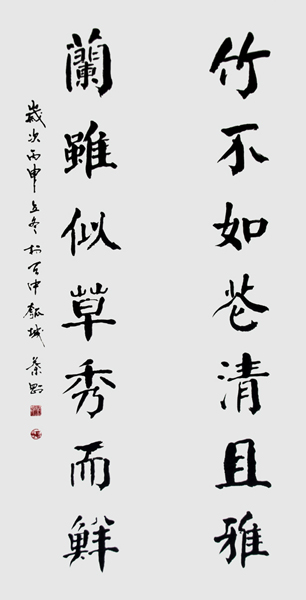 竹不如花清且雅
蘭雖似草秀而鮮
歲次丙申立冬於百中